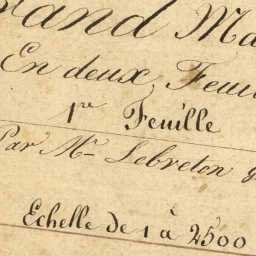 rand Ma
En deux Feui
1re Feuille
Par Mr Lebreton g
Echelle de 1 à 2500